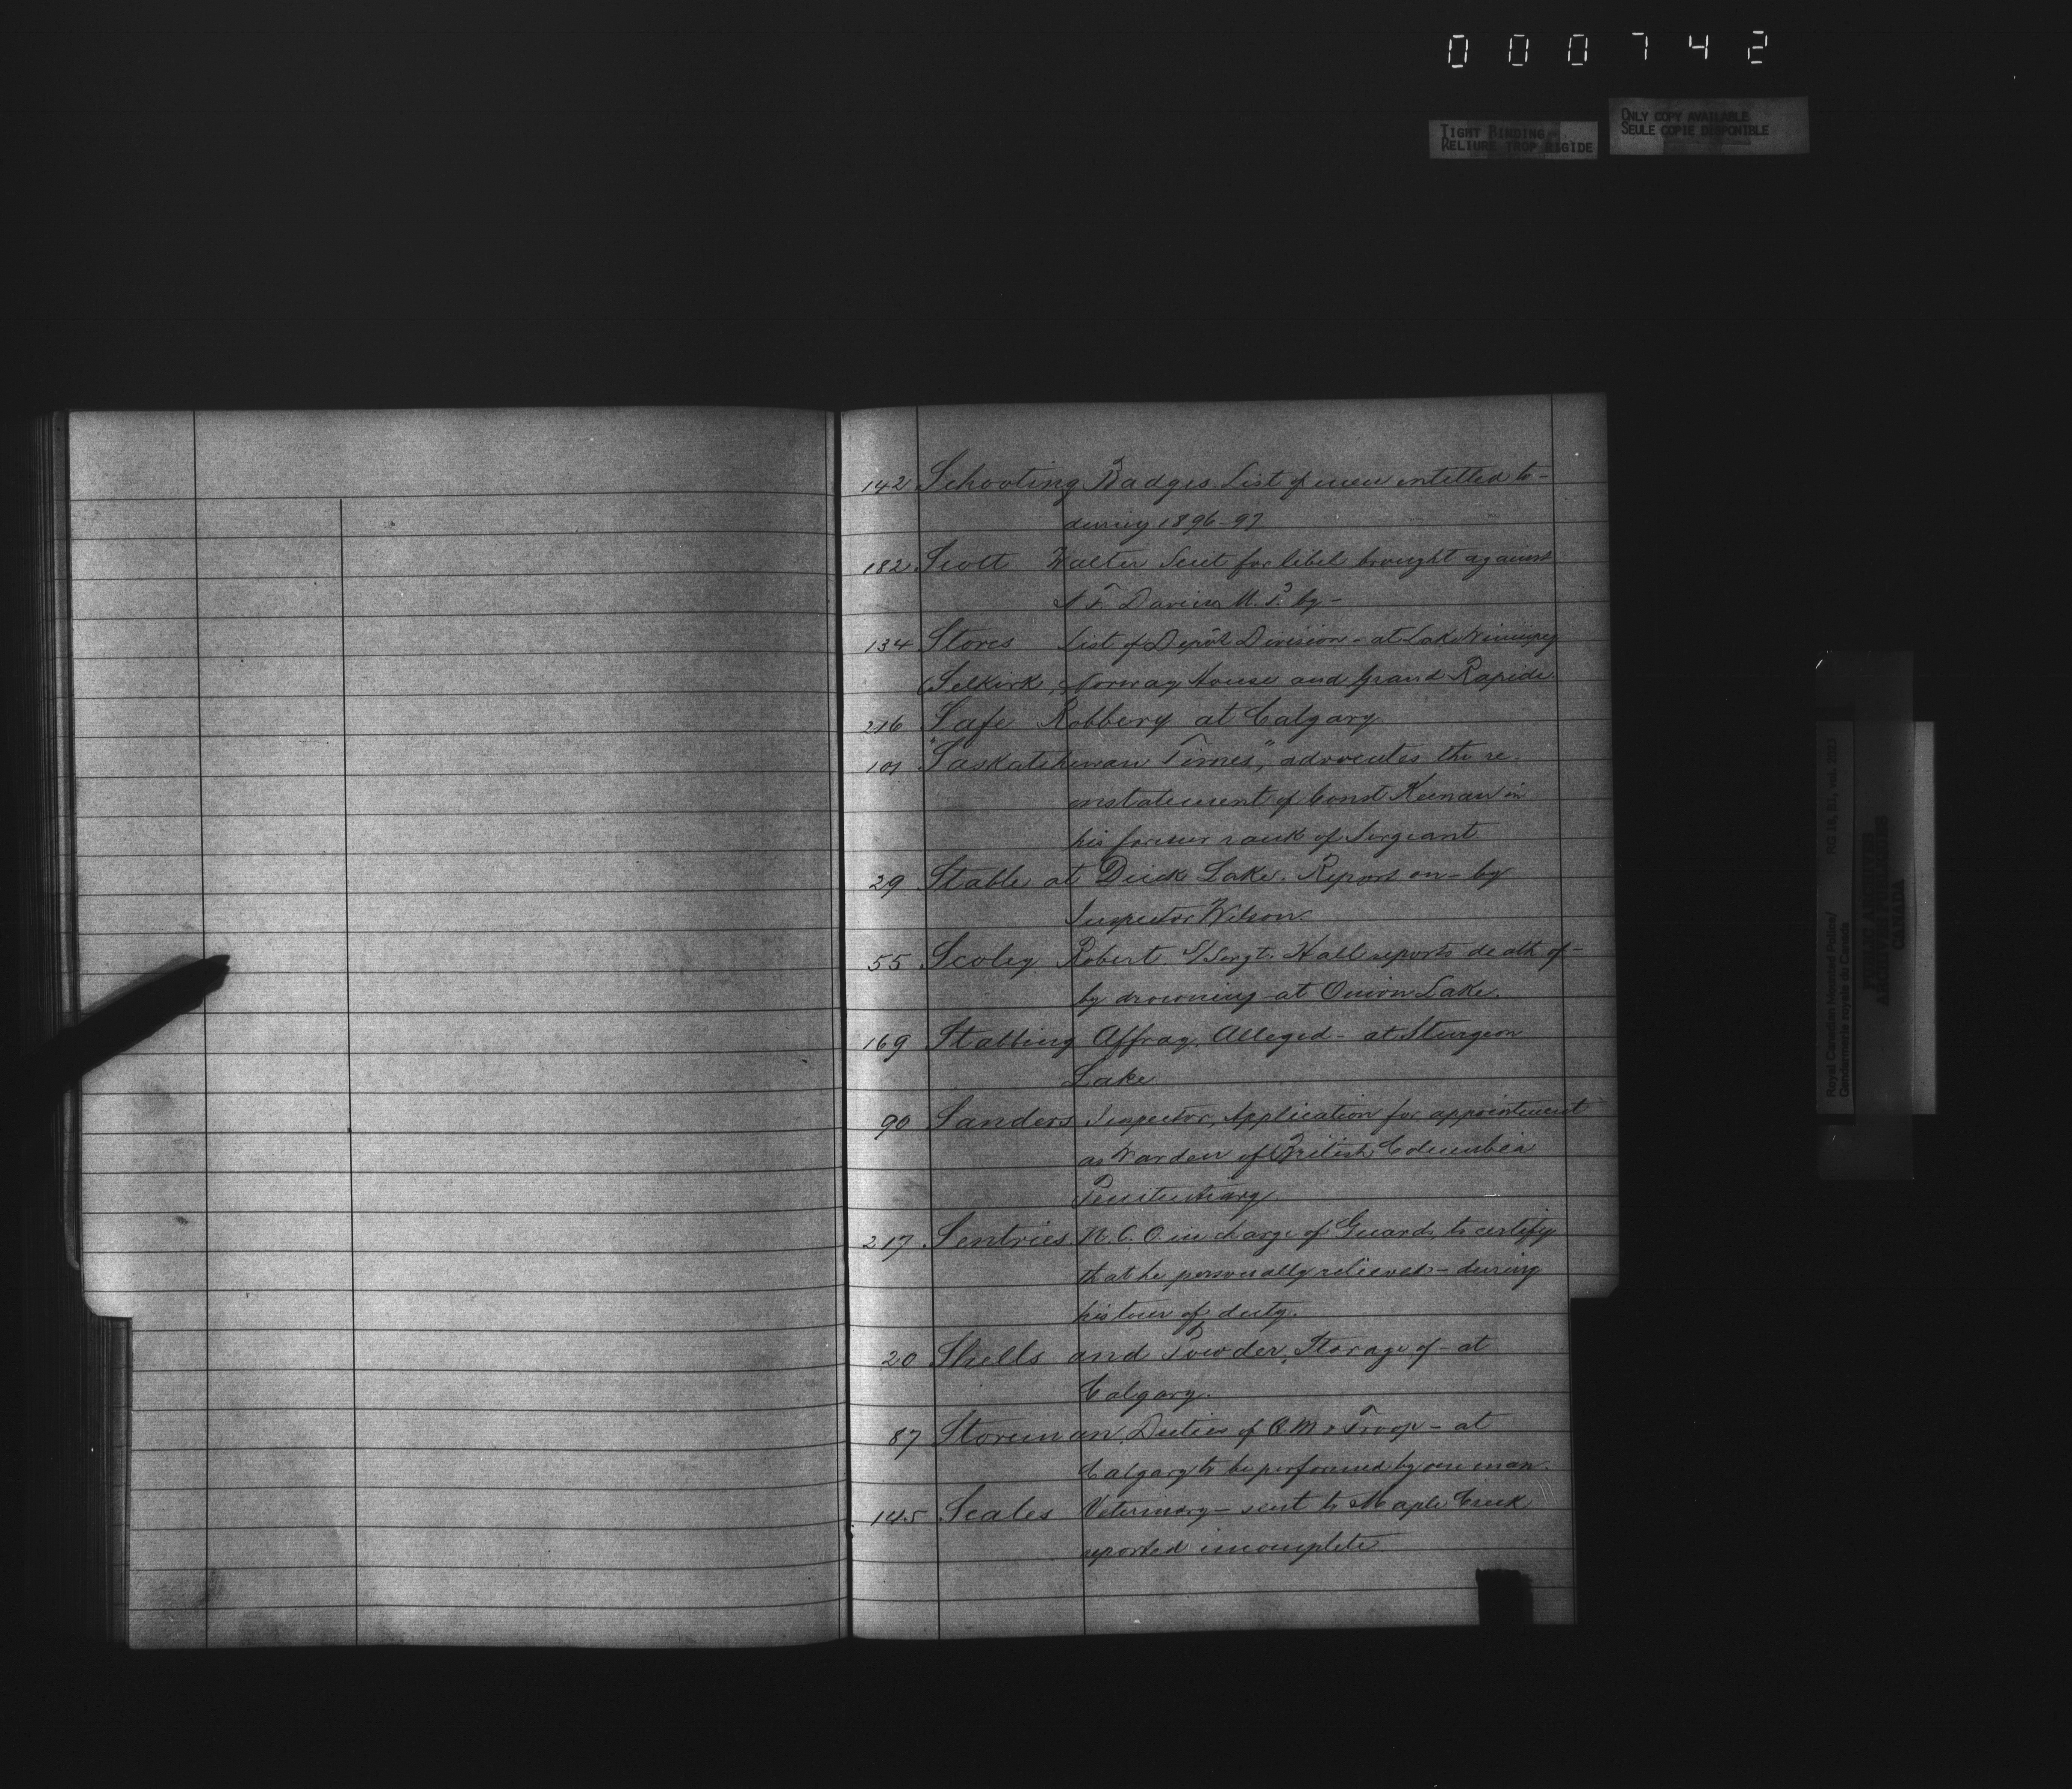 000742
TIGHT BINDING
RELIURE TROP RIGIDE
ONLY COPY AVAILABLE
SEULE COPIE DISPONIBLE
142 Schooting Badges List of men intitled to -
during 1896-97
182 Scott Walter Suit for libel brought against
N F. Davin M.P. by -
134 Stores List of Depôt Division - at Lake Winnipeg
(Selkirk, Norway House and Grand Rapids
216 Safe Robbery at Calgary
101 "Saskatchewan Times", advocates the re-
instatement of Const Keenan in
his former rank of Sergeant
29 Stable at Duck Lake. Report on - by
Inspector Wilson.
55 Scoley Robert. S/Sergt. Hall reports death of -
by drowning at Onion Lake.
169 Stabbing Affray, Alleged - at Sturgeon
Lake
90 Sanders Inspector, Application for appointment
as Warden of British Columbia
Penitentiary
217 Sentries N.C.O in charge of Guards to certify
that he personally relieved - during
his tour of duty.
20 Shells and Powder, Storage of - at
Calgary.
87 Storeman Duties of Q M & Troop - at
Calgary to be performed by one man.
145 Scales Veterinary - sent to Maple Creek
reported incomplete
Royal Canadian Mounted Police/
Gendarmerie royale du Canada
RG 18, B1, vol. 2317
PUBLIC ARCHIVES
ARCHIVES PUBLIQUES
CANADA